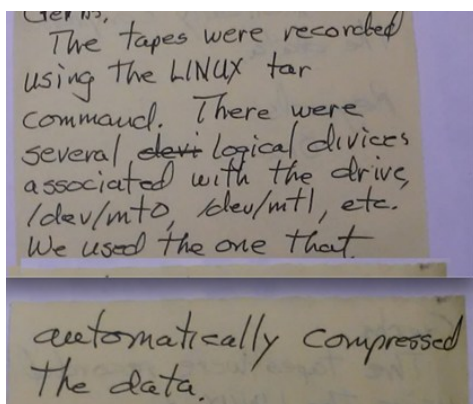 The tapes were recorded
using the LINUX tar
command. There were
several devi logical divices
associated with the drive,
/dev/mt0, /dev/mt1, etc.
We used the one that
automatically compressed
the data.